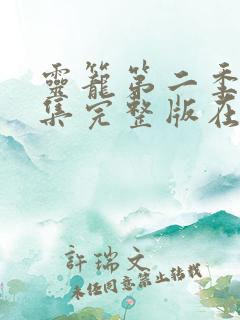 靈籠第二季
集完整版在
許瑞文
未經同意禁止轉載